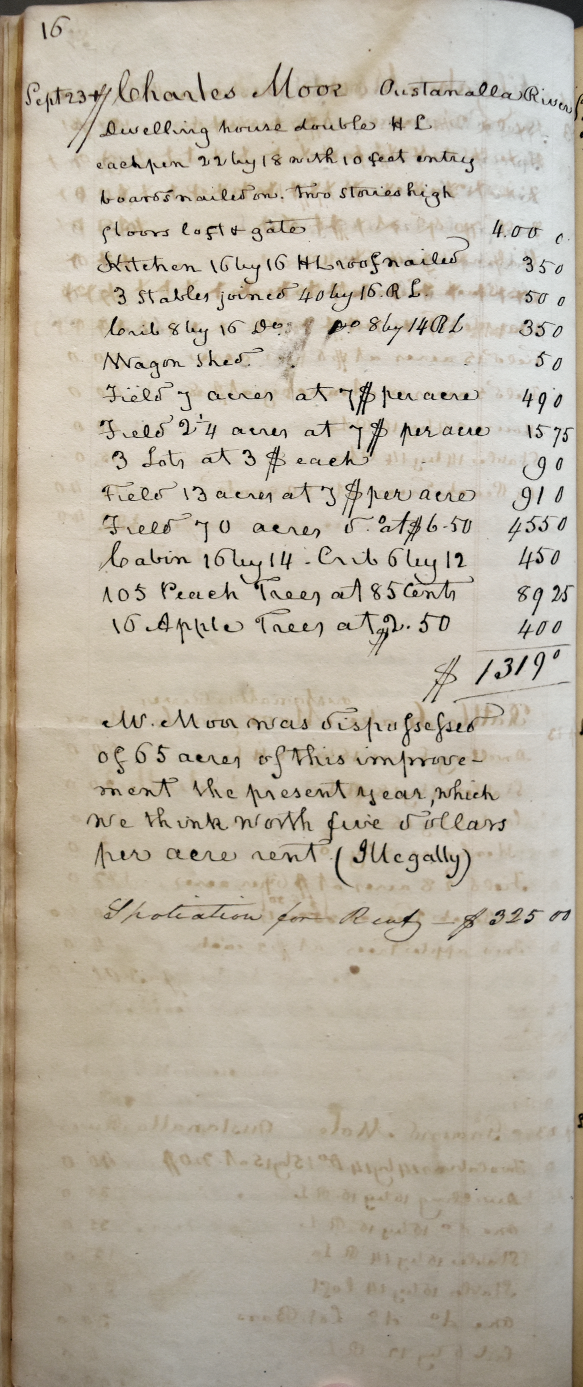 16
Sept 23rd Charles Moor Oustanalla River
Dwelling house double H L
each pen 22 by 18 with 10 feet entry
boards nailed on. two stories high
floors loft & gate 4.00 0
Kitchen 16 by 16 H L roof nailed 35 0
3 Stables joined 40 by 16 R L. 50 0
Crib 8 by 16 Do. Do 8 by 14 R L 35 0
Waggon shed. 5 0
Field 7 acres at 7$ per acre 49 0
Field 2 1/4 acres at 7$ per acre 15 75
3 Lots at 3 $ each 9 0
Field 13 acres at 7 $ per acre 91 0
Field 70 acres do. at $6.50 455 0
Cabin 16 by 14 - Crib 6 by 12 45 0
105 Peach Trees at 85 Cents 89 25
16 Apple Trees at $2.50 40 0
$ 1319 0
Mr. Moor was dispossessed
of 65 acres of this improve-
ment the present year, which
we think worth five dollars
per acre rent (Illegally)
Spoliation for Rent — $ 325 00